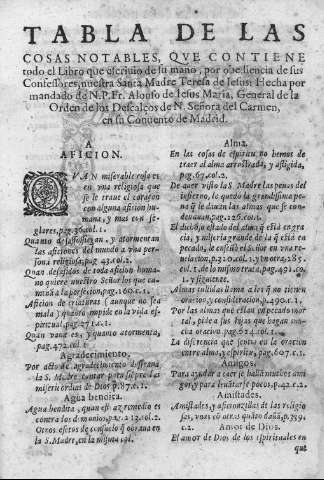 TABLA DE LAS
COSAS NOTABLES, QVE CONTIENE
todo el Libro que escriuio de su mano, por obediencia de sus
Confessores, nuestra Santa Madre Teresa de Iesus; Hecha por
mandado de N.P.Fr. Alonso de Iesus Maria, General de la
Orden de los Descalços de N. Señora del Carmen,
en su Conuento de Madrid.
A
AFICION.
QVAN miserable cosa es
en vna religiosa que
se le traue el coraçon
con alguna aficion hu-
mana, y mas con se-
glares, pag.36.col.1.
Quanto desassosiegan, y atormentan
las aficiones del mundo a vna per-
sona religiosa, pag 43.col.2.
Quan desasidos de toda aficion huma-
no quiere nuestro Señor los que ca-
minã a la perfeccion, pag.160.c.1.
Aficion de criaturas ( aunque no sea
mala ) quanto impide en la vida es-
piritual, pag.271.c.1.
Quan vana es, y quanto atormenta,
pag.472.col.
Agradecimiento.
Por acto de agradecimiento
la S. Madre tomar para si
misericordias de Dios p.87.c.1.
Agua bendita.
Agua bendita, quan eficaz remedio es
contra los demonios, p.212.col.2.
Otros efetos de consuelo q̃ obraua en
la S. Madre, en la misma
Alma.
En las cosas de espiritu no hemos de
traer al alma arrastrada, y afligida,
pag.67.col.2.
De auer visto la S. Madre las penas del
infierno, le quedo la grandissima pe-
na q̃ le dauan las almas que se con-
denauan, pag.226.col.1.
El dichoso estado del alma q̃ està en gra-
cia, y miseria grande de la q̃ està en
pecado, se enseñò el Señor en vna re-
uelacion, p.320.col.1. y notra, 285.
col.1. de lo mismo trata, pag.491.co.
1. y siguientes.
Almas tullidas llama a los q̃ no tienen
oracion, y consideracion, p.490.c.1.
Por las almas que estan en pecado mor-
tal, pide a sus hijas que hagan mu-
cha oracion pag.524.col.1.
La diferencia que sentia en la oracion
entre alma, y espiritu, pag.607.c.1.
Amigos.
Para ayudar a caer se hallã muchos ami-
gos, y para leuãtarse pocos, p.42.c.2.
Amistades.
Amistades, y aficiones de las religio-
sas, vnas cõ otras quãto dañã, p.359.
col.1.
Amor de Dios.
El amor de Dios de los espirituales en
que